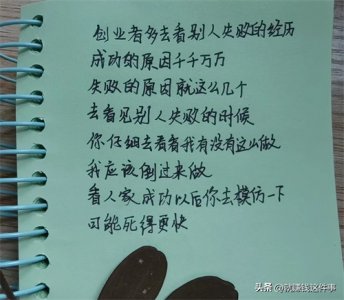 创业者多去看别人失败的经历
成功的原因千千万万
失败的原因就这么几个
去看见别人失败的时候
你仔细去看看我有没有这么做
我应该倒过来做
看人家成功以后你去模仿一下
可能死得更快
头条 @就赚钱这件事